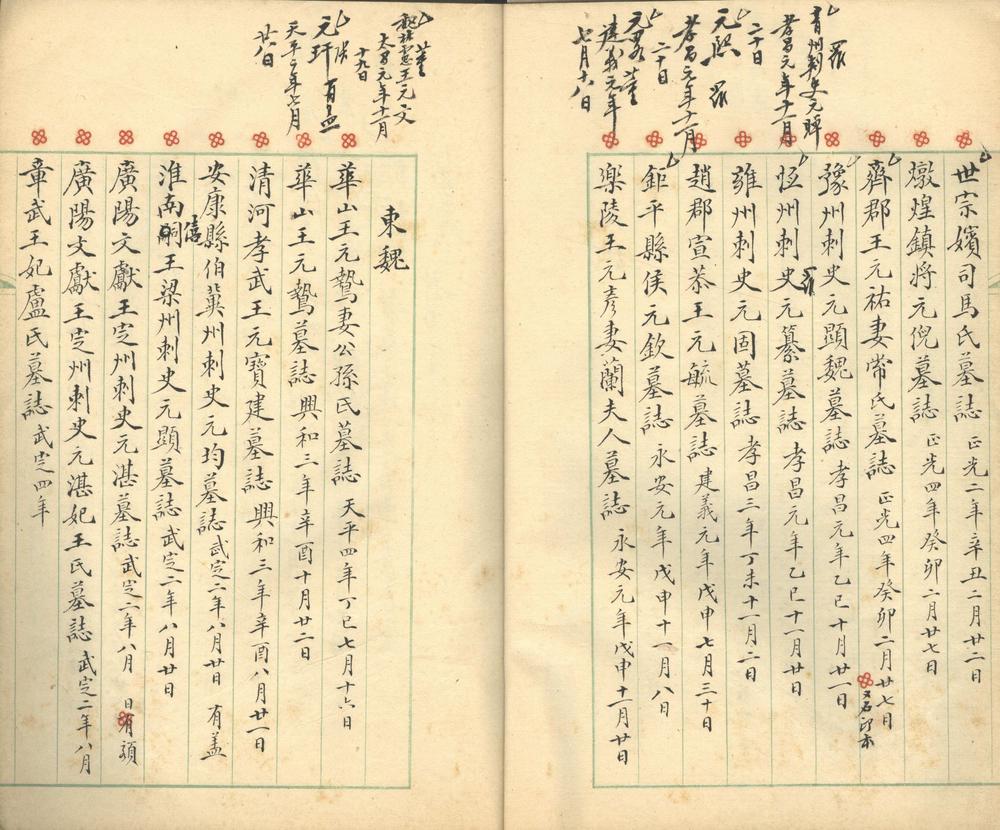 青州刺史元晫
羅
孝昌元年十一月
二十日
元熙 羅
孝昌元年十一月
二十日
董
建義元年
七月十八日
世宗嬪司馬氏墓誌 正光二年辛丑二月廿二日
燉煌鎮將元倪墓誌 正光四年癸卯二月廿七日
齊郡王元祐妻常氏墓誌 正光四年癸卯二月廿七日
又石印本
豫州刺史元顯魏墓誌 孝昌元年乙巳十月廿一日
恆州刺史元纂墓誌 孝昌元年乙巳十一月廿日
羅
雍州刺史元固墓誌 孝昌三年丁未十一月二日
趙郡宣恭王元毓墓誌 建義元年戊申七月三十日
鉅平縣侯元欽墓誌 永安元年戊申十一月八日
樂陵王元彥妻蘭夫人墓誌 永安元年戊申十一月廿日
董
王元文
太昌元年十一月
十九日
元玕 有蓋
天平二年七月
廿八日
東魏
華山王元鷙妻公孫氏墓誌 天平四年丁巳七月十六日
華山王元鷙墓誌 興和三年辛酉十月廿二日
清河孝武王元寶建墓誌 興和三年辛酉八月廿一日
安康縣伯冀州刺史元均墓誌 武定二年八月廿日 有蓋
淮南王梁州刺史元顯墓誌 武定二年八月廿日
僖
廣陽文獻王定州刺史元湛墓誌 武定二年八月 日 有額
廣陽文獻王定州刺史元湛妃王氏墓誌 武定二年八月
章武王妃盧氏墓誌 武定四年